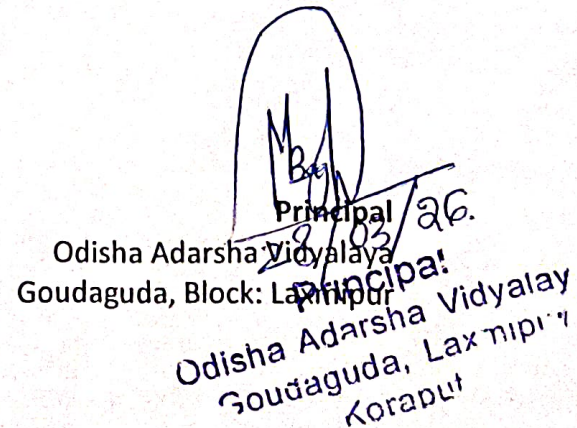 Principal
28/03/26.
Odisha Adarsha Vidyalaya
Goudaguda, Block: Laxmipur
Principal
Odisha Adarsha Vidyalay
Goudaguda, Laxmipur
Koraput